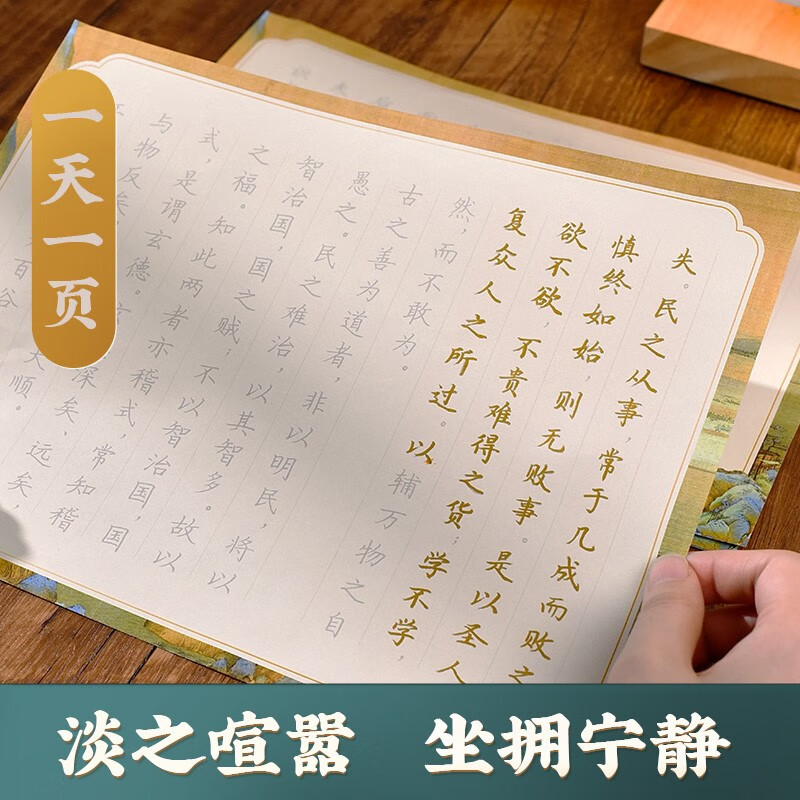 一天一页
失。民之从事，常于几成而败之
慎终如始，则无败事。是以圣人
欲不欲，不贵难得之货；学不学，
复众人之所过。以辅万物之自
然，而不敢为。
古之善为道者，非以明民，将以
愚之。民之难治，以其智多。故以
智治国，国之贼；不以智治国，国
之福。知此两者亦稽式，常知稽
式，是谓玄德。玄深矣、远矣，
与物反矣，大顺。
百谷
淡之喧嚣 坐拥宁静